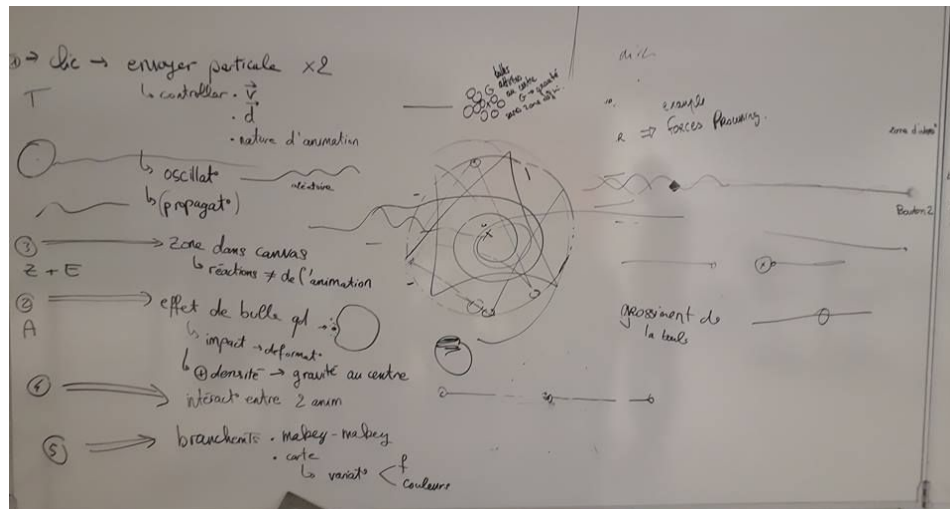 ① → clic → envoyer particule x2
T
↳ controller · v⃗
· d⃗
· nature d'animation
↳ oscillat°
aléatoire
↳ (propagat°)
③ → zone dans canvas
Z + E
↳ réactions ≠ de l'animation
② → effet de bulle qd →
A
↳ impact → deformat°
↳ ⊕ densité → gravité au centre
④ → intéract° entre 2 anim
⑤ → branchements · makey-makey
· carte
↳ variat° < f
couleurs
bulles
attirées
au centre
G → gravité
sans zone
example
R ⇒ Forces Processing.
Bouton 2
grossiment de
la boule